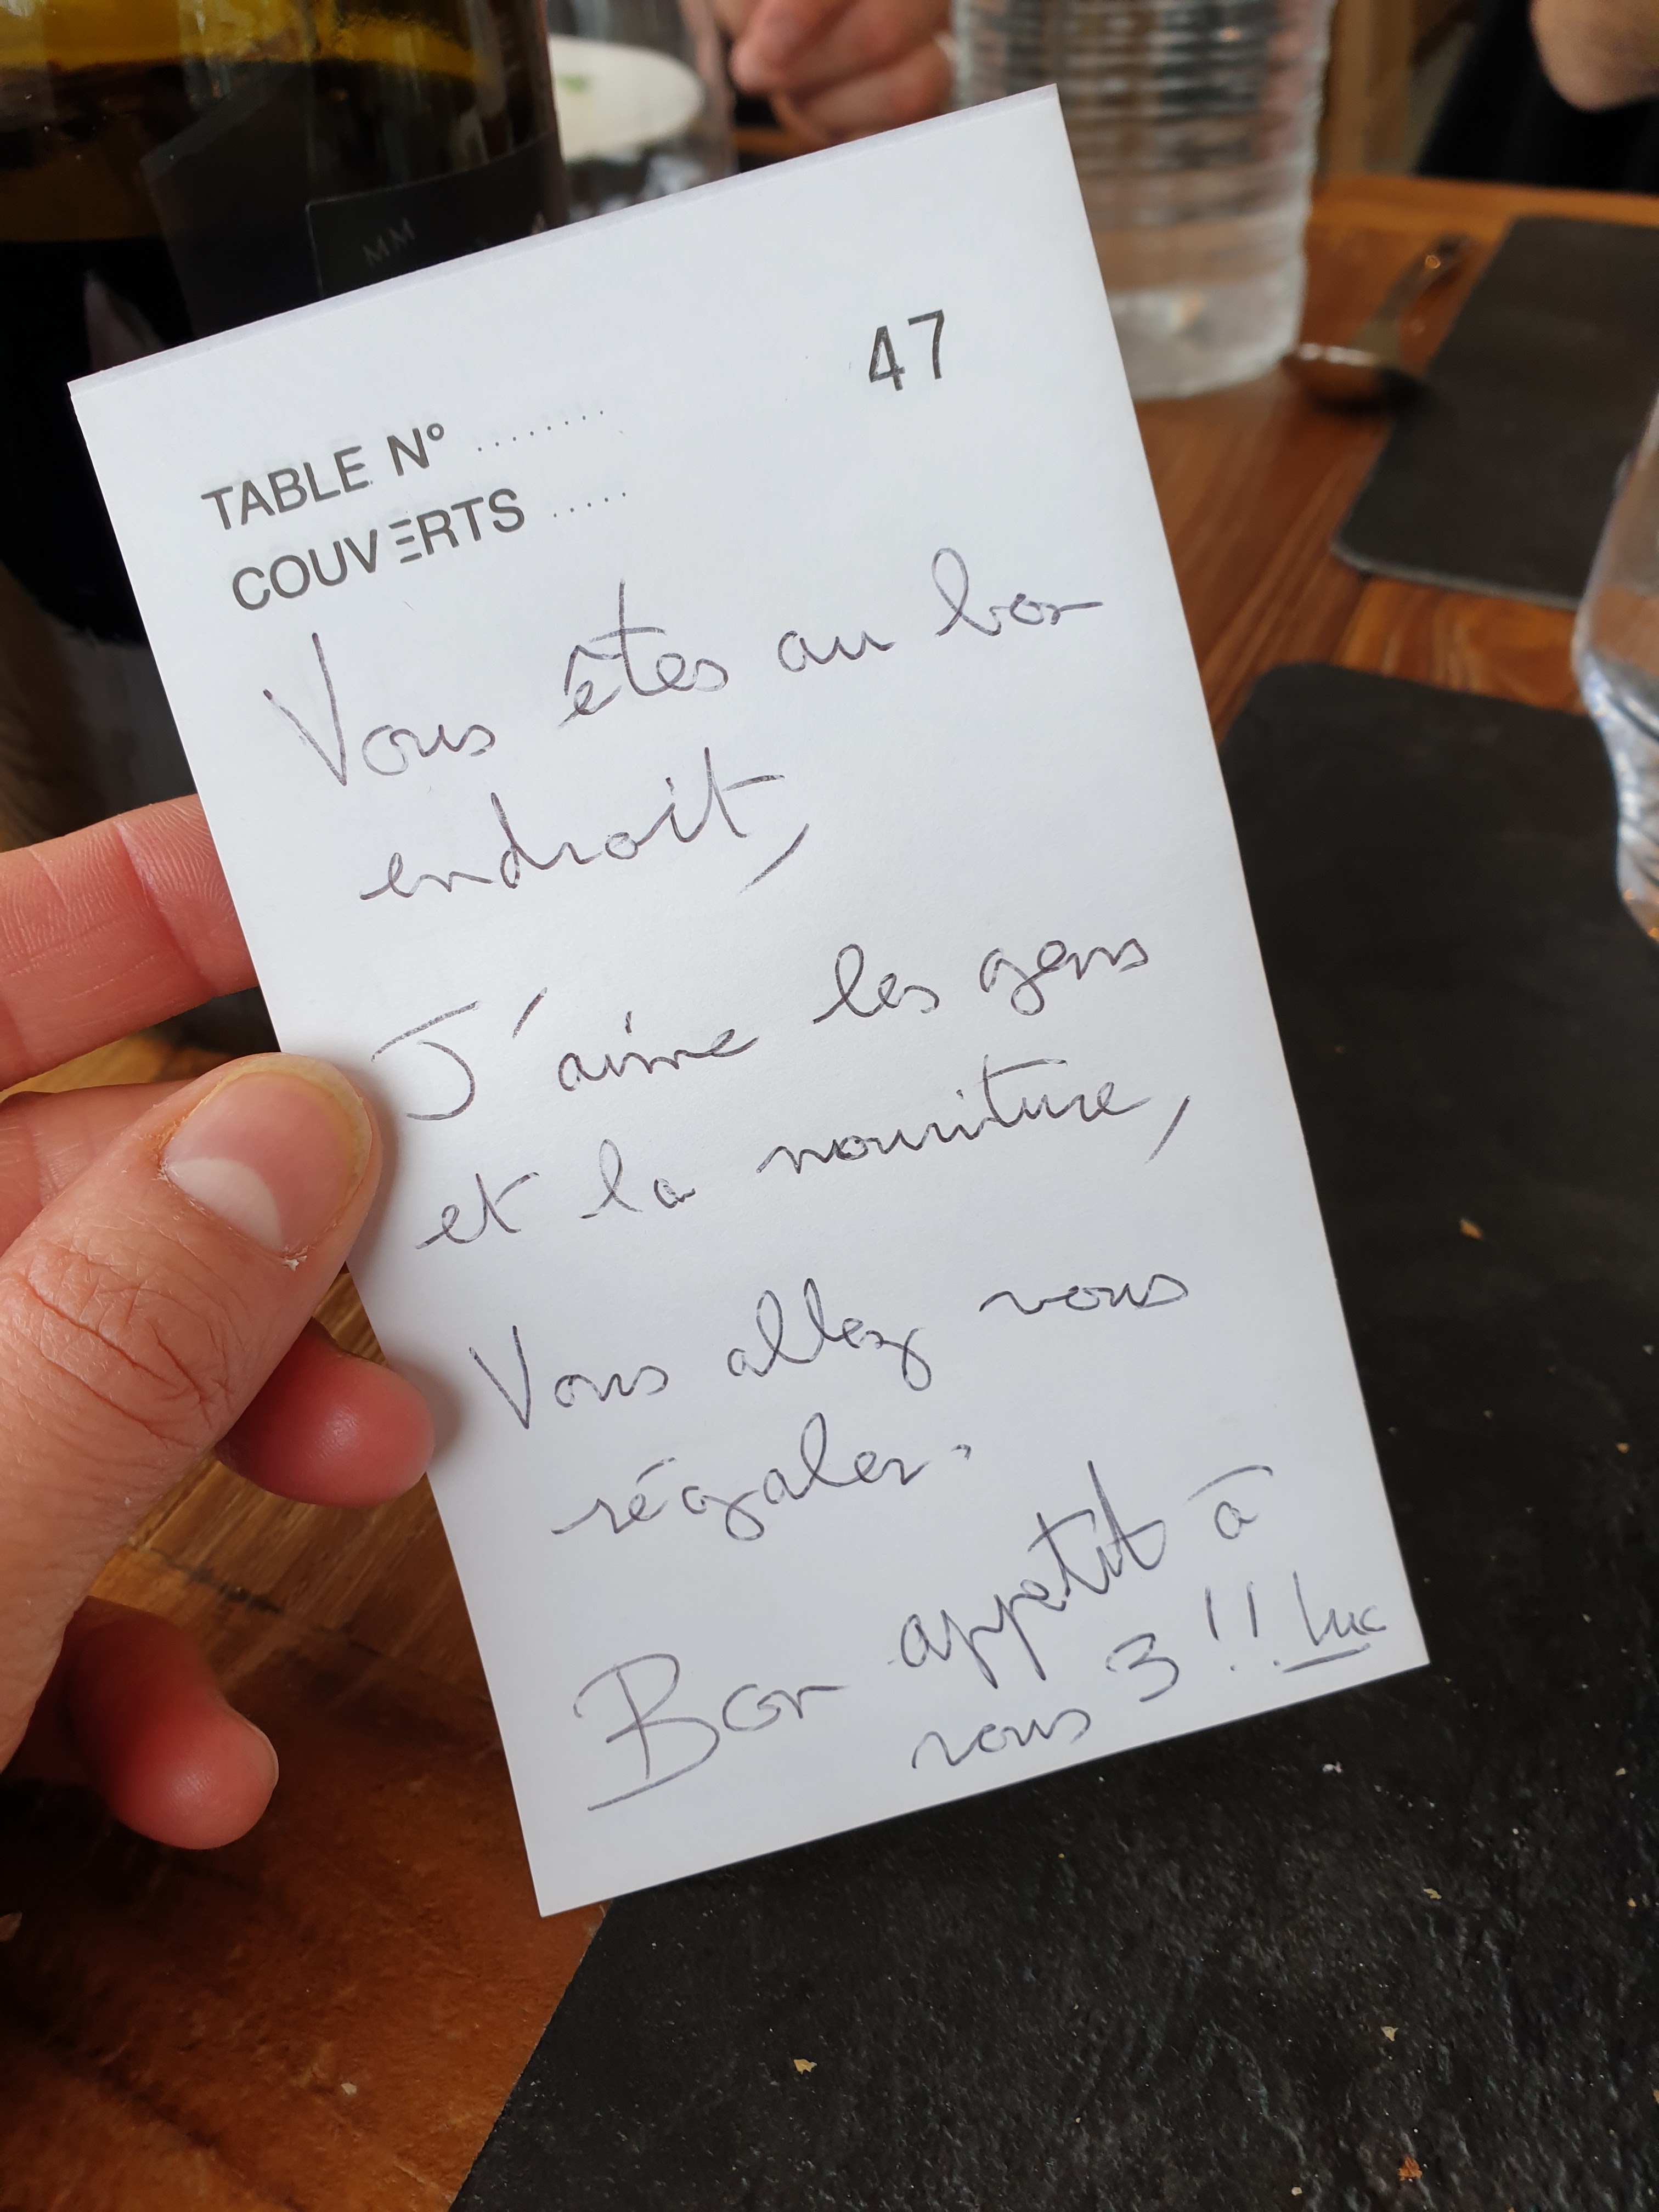 MM
47
TABLE N° ........
COUVERTS .....
Vous êtes au bon
endroit,
J'aime les gens
et la nouriture,
Vous allez vous
régaler.
Bon appétit à
vous 3 !! Luc